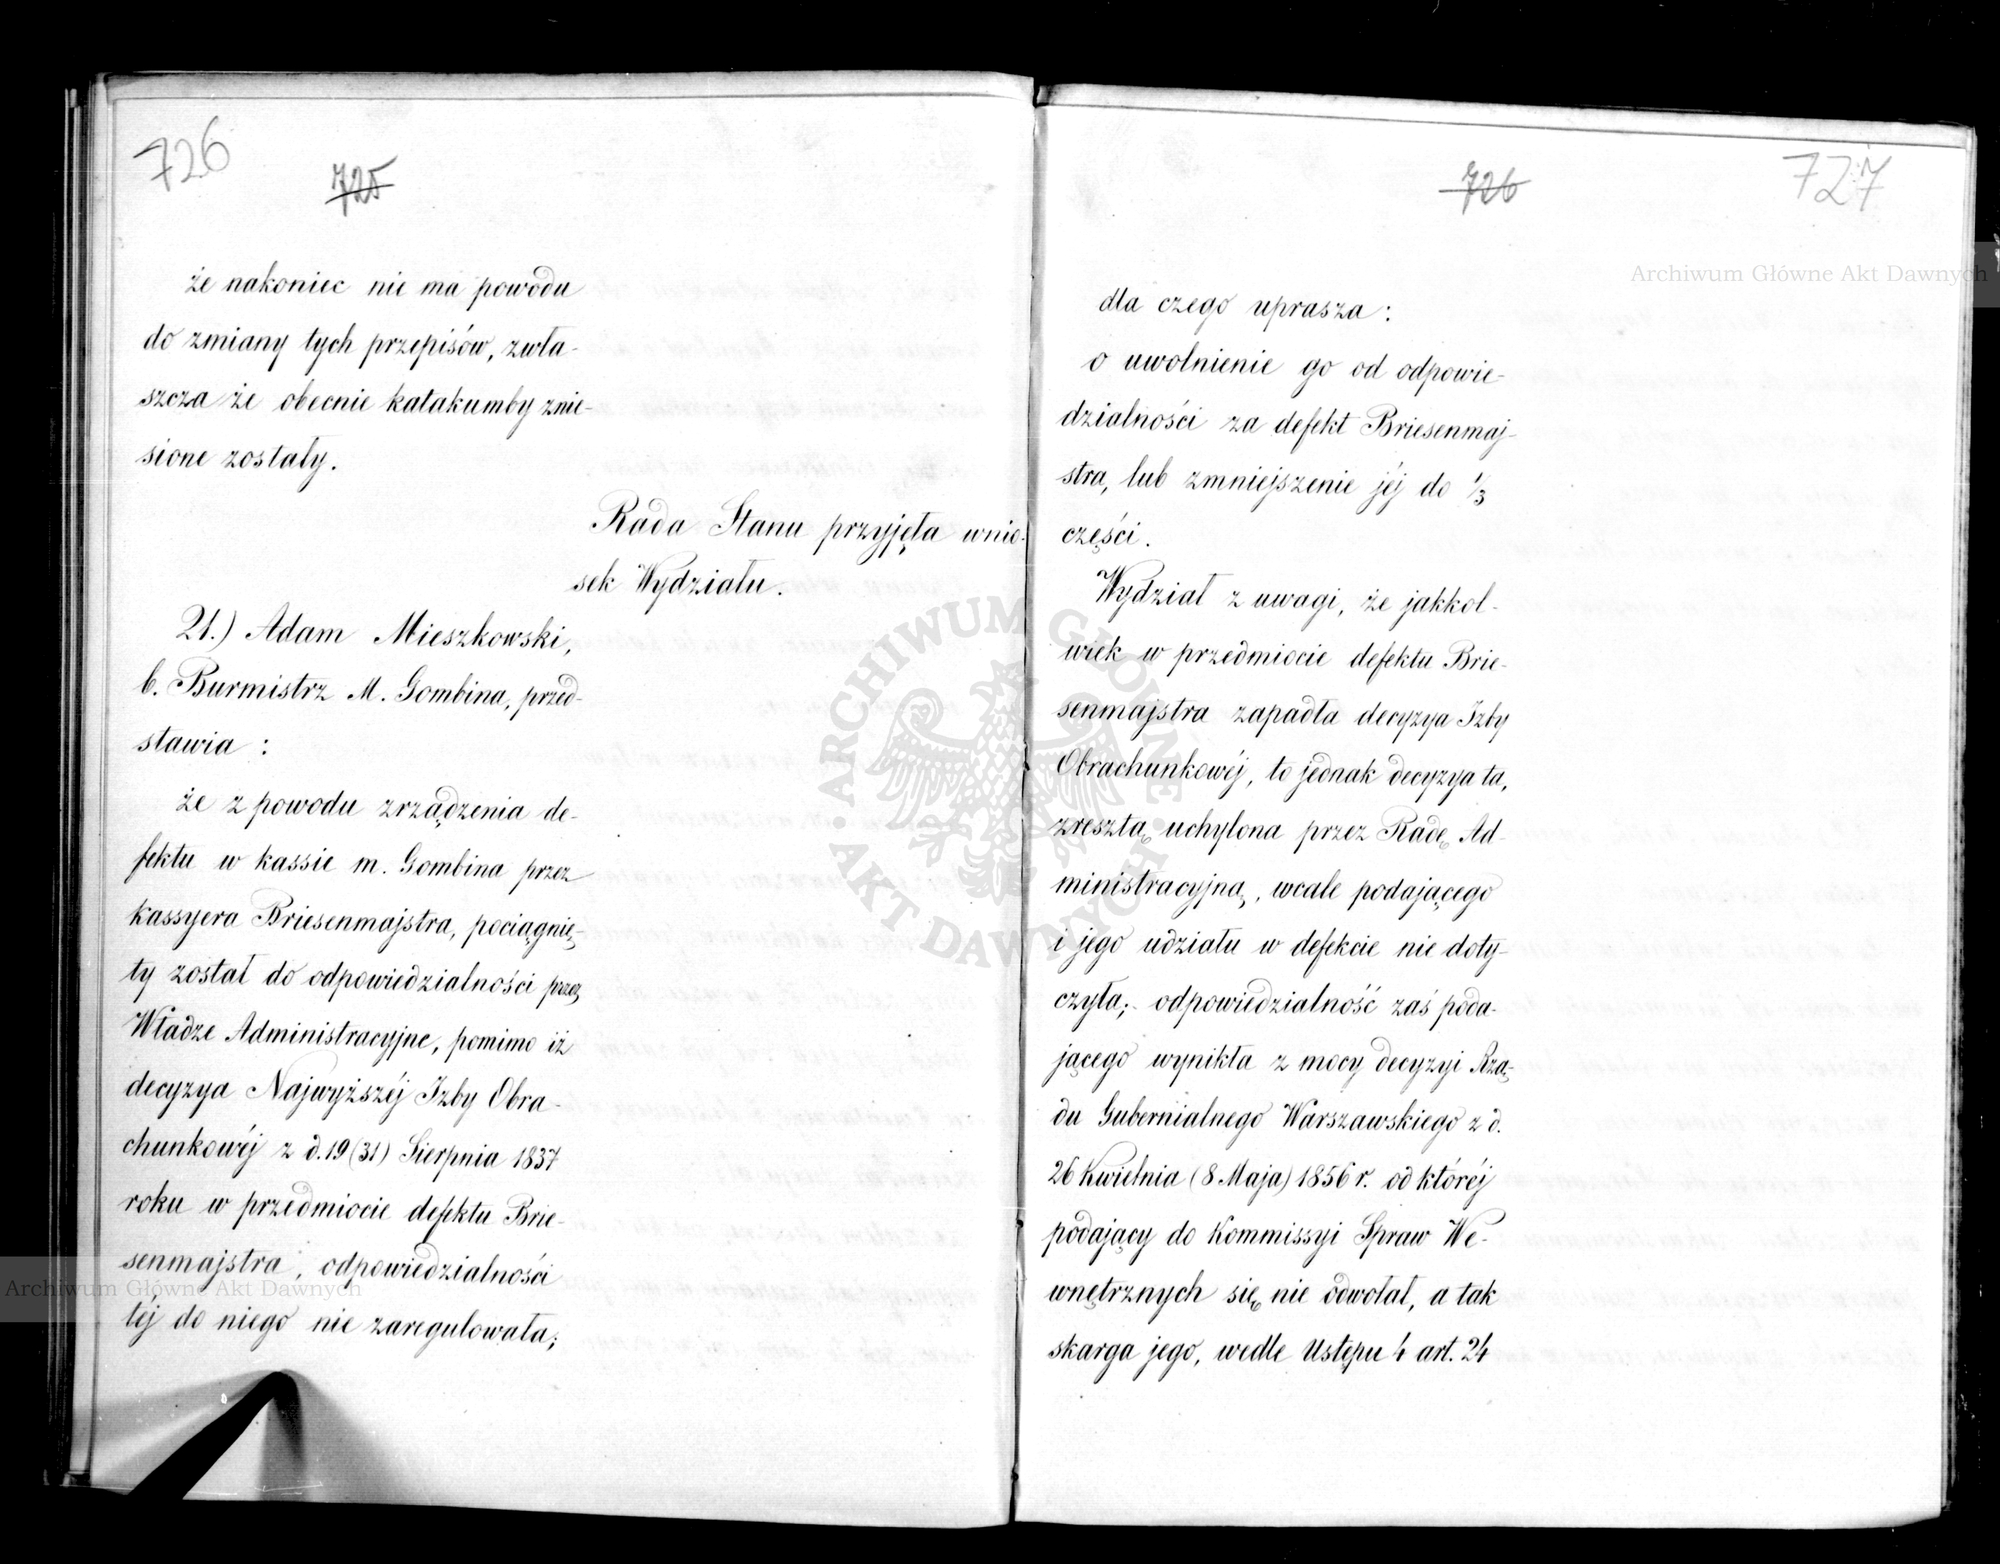 726
725
że nakoniec nie ma powodu
do zmiany tych przepisów, zwła-
szcza że obecnie katakumby znie-
sione zostały.
Rada Stanu przyjęła wnio-
sek Wydziału.
21.) Adam Mieszkowski,
b. Burmistrz M. Gombina, przed-
stawia :
że z powodu zrządzenia de-
fektu w kassie m. Gombina przez
kassyera Briesenmajstra, pociągnię-
ty został do odpowiedzialności przez
Władze Administracyjne, pomimo iż
decyzya Najwyższéj Izby Obra-
chunkowéj z d. 19 (31) Sierpnia 1837
roku w przedmiocie defektu Brie-
senmajstra, odpowiedzialności
téj do niego nie zaregulowała;
726
727
dla czego uprasza :
o uwolnienie go od odpowie-
dzialności za defekt Briesenmaj-
stra, lub zmniejszenie jéj do 1/3
części.
Wydział z uwagi, że jakkol-
wiek w przedmiocie defektu Brie-
senmajstra zapadła decyzya Izby
Obrachunkowéj, to jednak decyzya ta,
zresztą uchylona przez Radę Ad-
ministracyjną, wcale podającego
i jego udziału w defekcie nie doty-
czyła; odpowiedzialność zaś poda-
jącego wynikła z mocy decyzyi Rzą-
du Gubernialnego Warszawskiego z d.
26 Kwietnia (8 Maja) 1856 r. od któréj
podający do Kommissyi Spraw We-
wnętrznych się nie odwołał, a tak
skarga jego, wedle Ustępu 4 art. 24
Archiwum Główne Akt Dawnych
Archiwum Główne Akt Dawnych
ARCHIWUM GŁÓWNE · AKT DAWNYCH ·